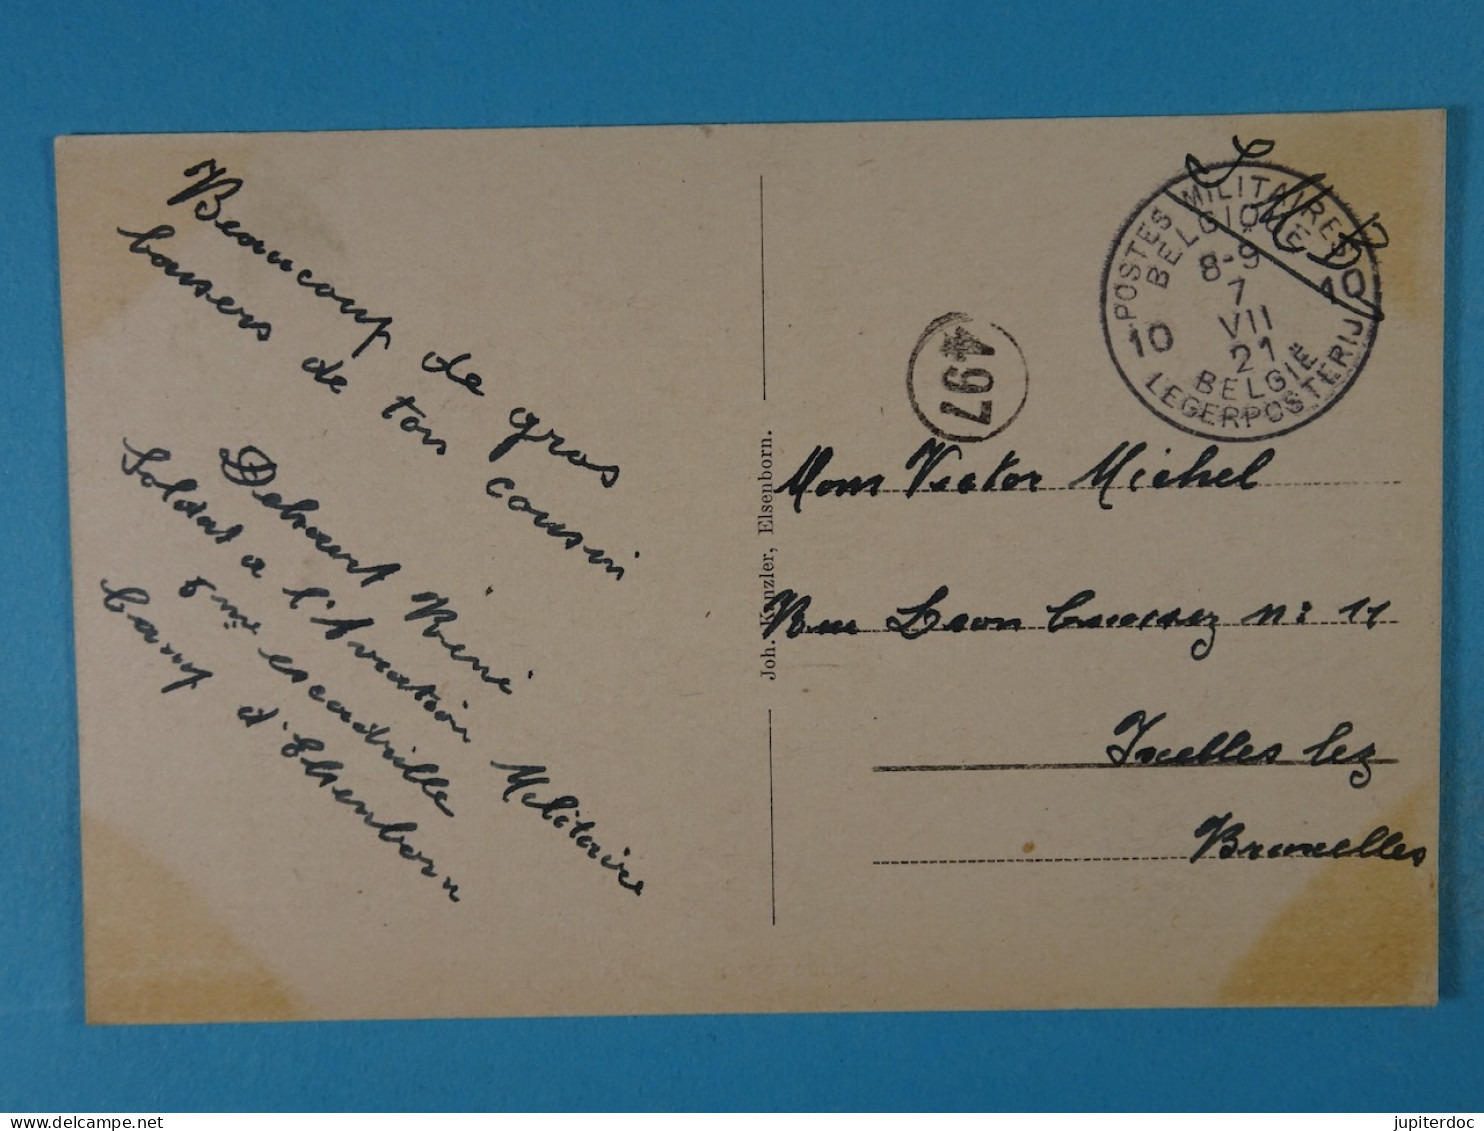 Beaucoup de gros
baisers de ton cousin
Dehaert René
Soldat a l'Aviation Militaire
5me escadrille
Camp d'Elsenborn
Joh. Kanzler, Elsenborn.
S.M.B
POSTES MILITAIRES
BELGIQUE
8-9
7
VII
21
10 10
BELGIË
LEGERPOSTERIJ
497
Mons Victor Michel
Rue Léon Cuissez n: 11
Ixelles lez
Bruxelles
jupiterdoc